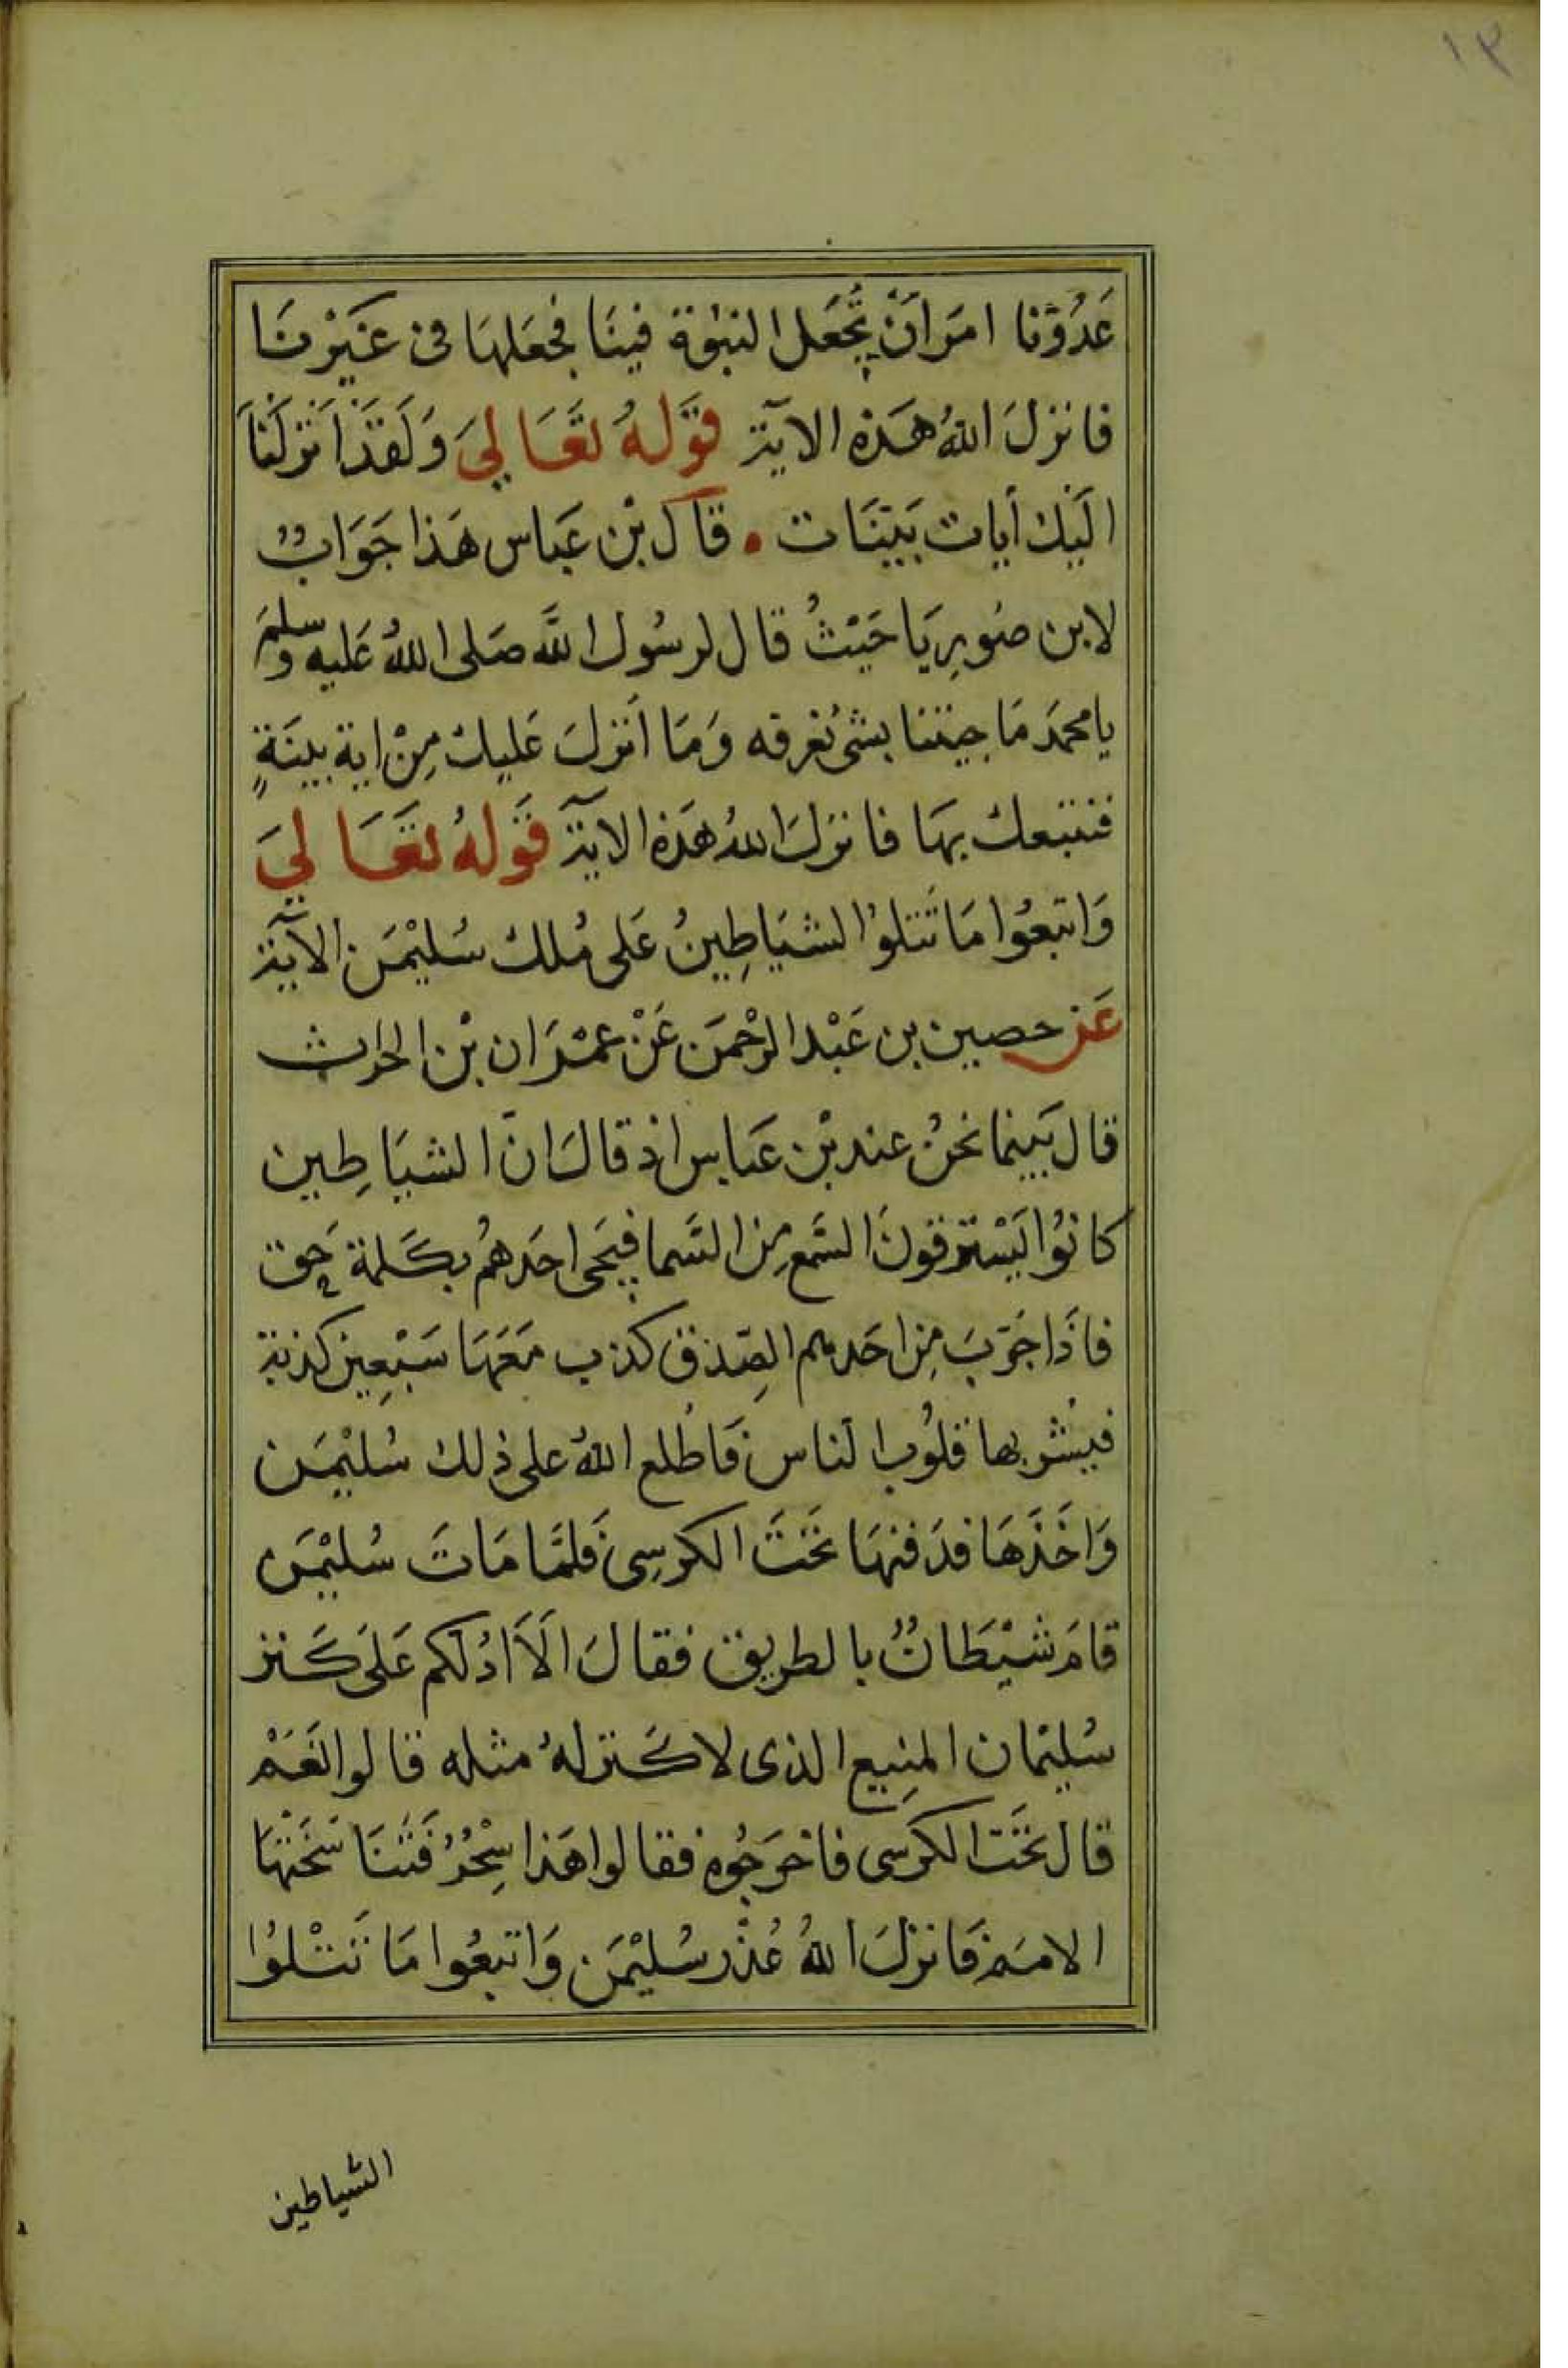 ١٣
عَدُوّنا امَرَ اَنْ تُجْعَل النبوّة فينَا فجعَلهَا فى غَيْرنَا
فانزلَ اللهُ هَذه الآية قَوْلهُ تعَالىَ وَلَقَدْ اَنْزَلْنَا
الَيْك اٰيات بَيّنَات • قاَل بْن عَباس هَذا جَوَابٌ
لابن صُورِيَا حَيْثُ قال لرسُول اللَّه صَلى اللهُ عَليه وسلمَ
يا محمدَ مَا جيتنا بشئ نعْرفه وَمَا اَنْزلَ عَليك مِنْ اية بينَةٍ
فنتبعك بهَا فانزلَ اللهُ هَذه الآية قَوْلهُ تعَالىَ
وَاتبعُوا مَا تَتلوُا الشيَاطِينُ عَلى مُلك سُليْمَن الآية
عَن حصين بن عَبْد الرحْمَن عَنْ عمْرَان بْن الحارث
قال بَينما نحْنُ عند بْن عَباس اذ قالَ انّ الشيَاطِين
كانوُا يَسْترقونَ السَّمع مِن السَّما فيَجى احَدهُم بكَلمة حَق
فاذَا جَرّبَ مِن احَدهم الصِّدْق كذب مَعَهَا سَبْعِين كذبة
فيشْربها قلوُب الناس فَاطْلع اللهُ على ذلك سُليْمَن
وَاخَذَهَا فدَفنهَا تَحْتَ الكرسِى فَلمَّا مَاتَ سُليْمَن
قامَ شيْطَانٌ بالطريق فقالَ اَلاَ ادُلكم عَلىَ كَنز
سُليْمان المنِيع الذى لا كَنز لهُ مثله قالوا نعَمْ
قال تحَتَ الكرسى فاخرَجُوه فقالوا هَذا سِحْرٌ فَتنَا سَخَتْهَا
الامَم فَانزلَ اللهُ عُذْر سُليْمَن وَاتبعُوا مَا تَتْلوُا
الشياطين